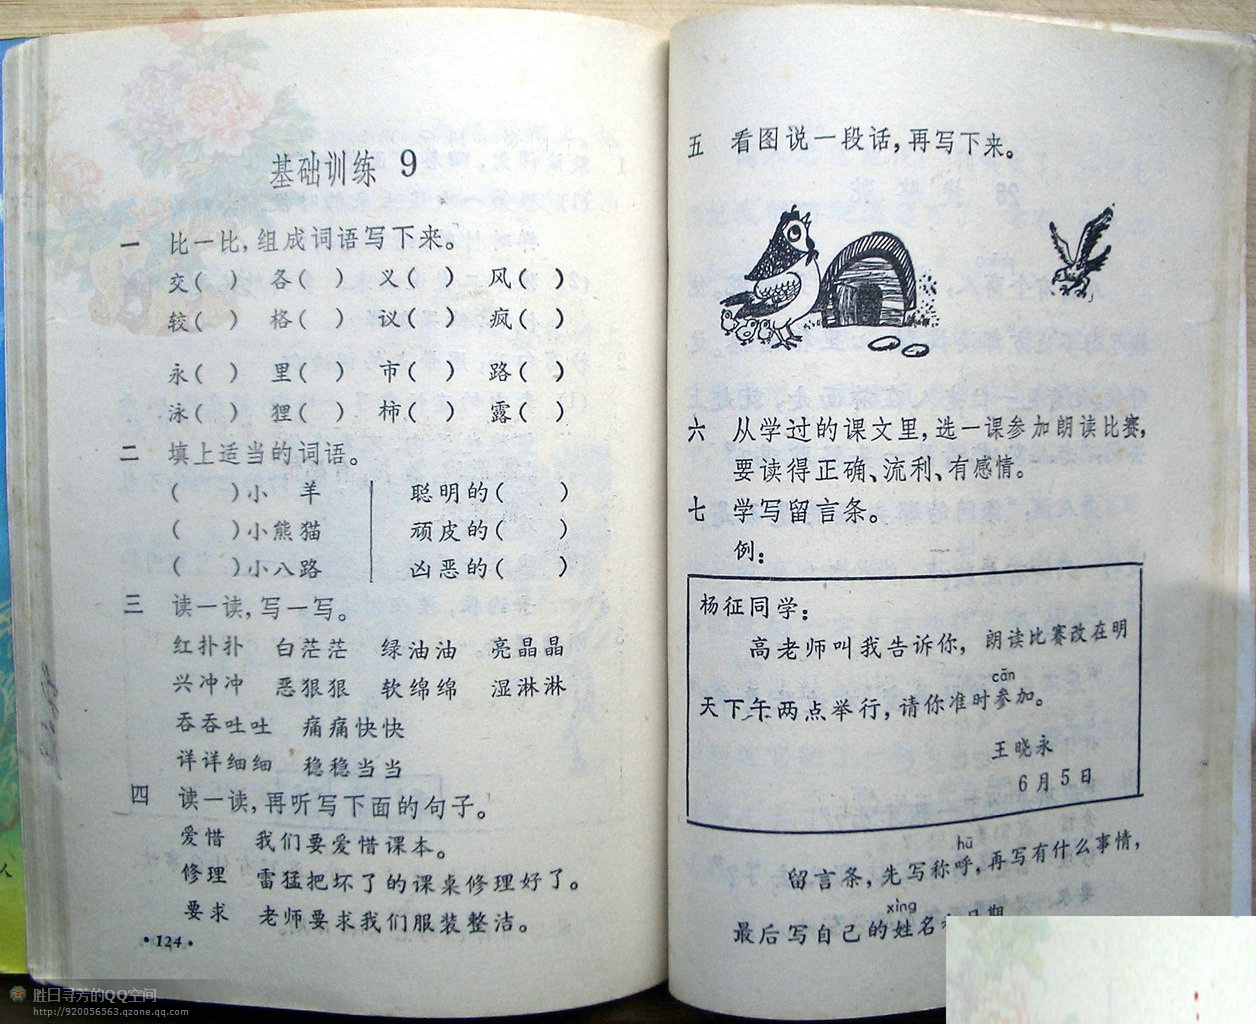 基础训练 9
一 比一比,组成词语写下来。
交( ) 各( ) 义( ) 风( )
较( ) 格( ) 议( ) 疯( )
永( ) 里( ) 市( ) 路( )
泳( ) 狸( ) 柿( ) 露( )
二 填上适当的词语。
( )小 羊 聪明的( )
( )小熊猫 顽皮的( )
( )小八路 凶恶的( )
三 读一读,写一写。
红扑扑 白茫茫 绿油油 亮晶晶
兴冲冲 恶狠狠 软绵绵 湿淋淋
吞吞吐吐 痛痛快快
详详细细 稳稳当当
四 读一读,再听写下面的句子。
爱惜 我们要爱惜课本。
修理 雷猛把坏了的课桌修理好了。
要求 老师要求我们服装整洁。
·124·
五 看图说一段话,再写下来。
六 从学过的课文里,选一课参加朗读比赛,
要读得正确、流利、有感情。
七 学写留言条。
例:
杨征同学:
高老师叫我告诉你,朗读比赛改在明
cān
天下午两点举行,请你准时参加。
王晓永
6月5日
hū
留言条,先写称呼,再写有什么事情,
xìng
最后写自己的姓名
胜日寻芳的QQ空间
http://920056563.qzone.qq.com